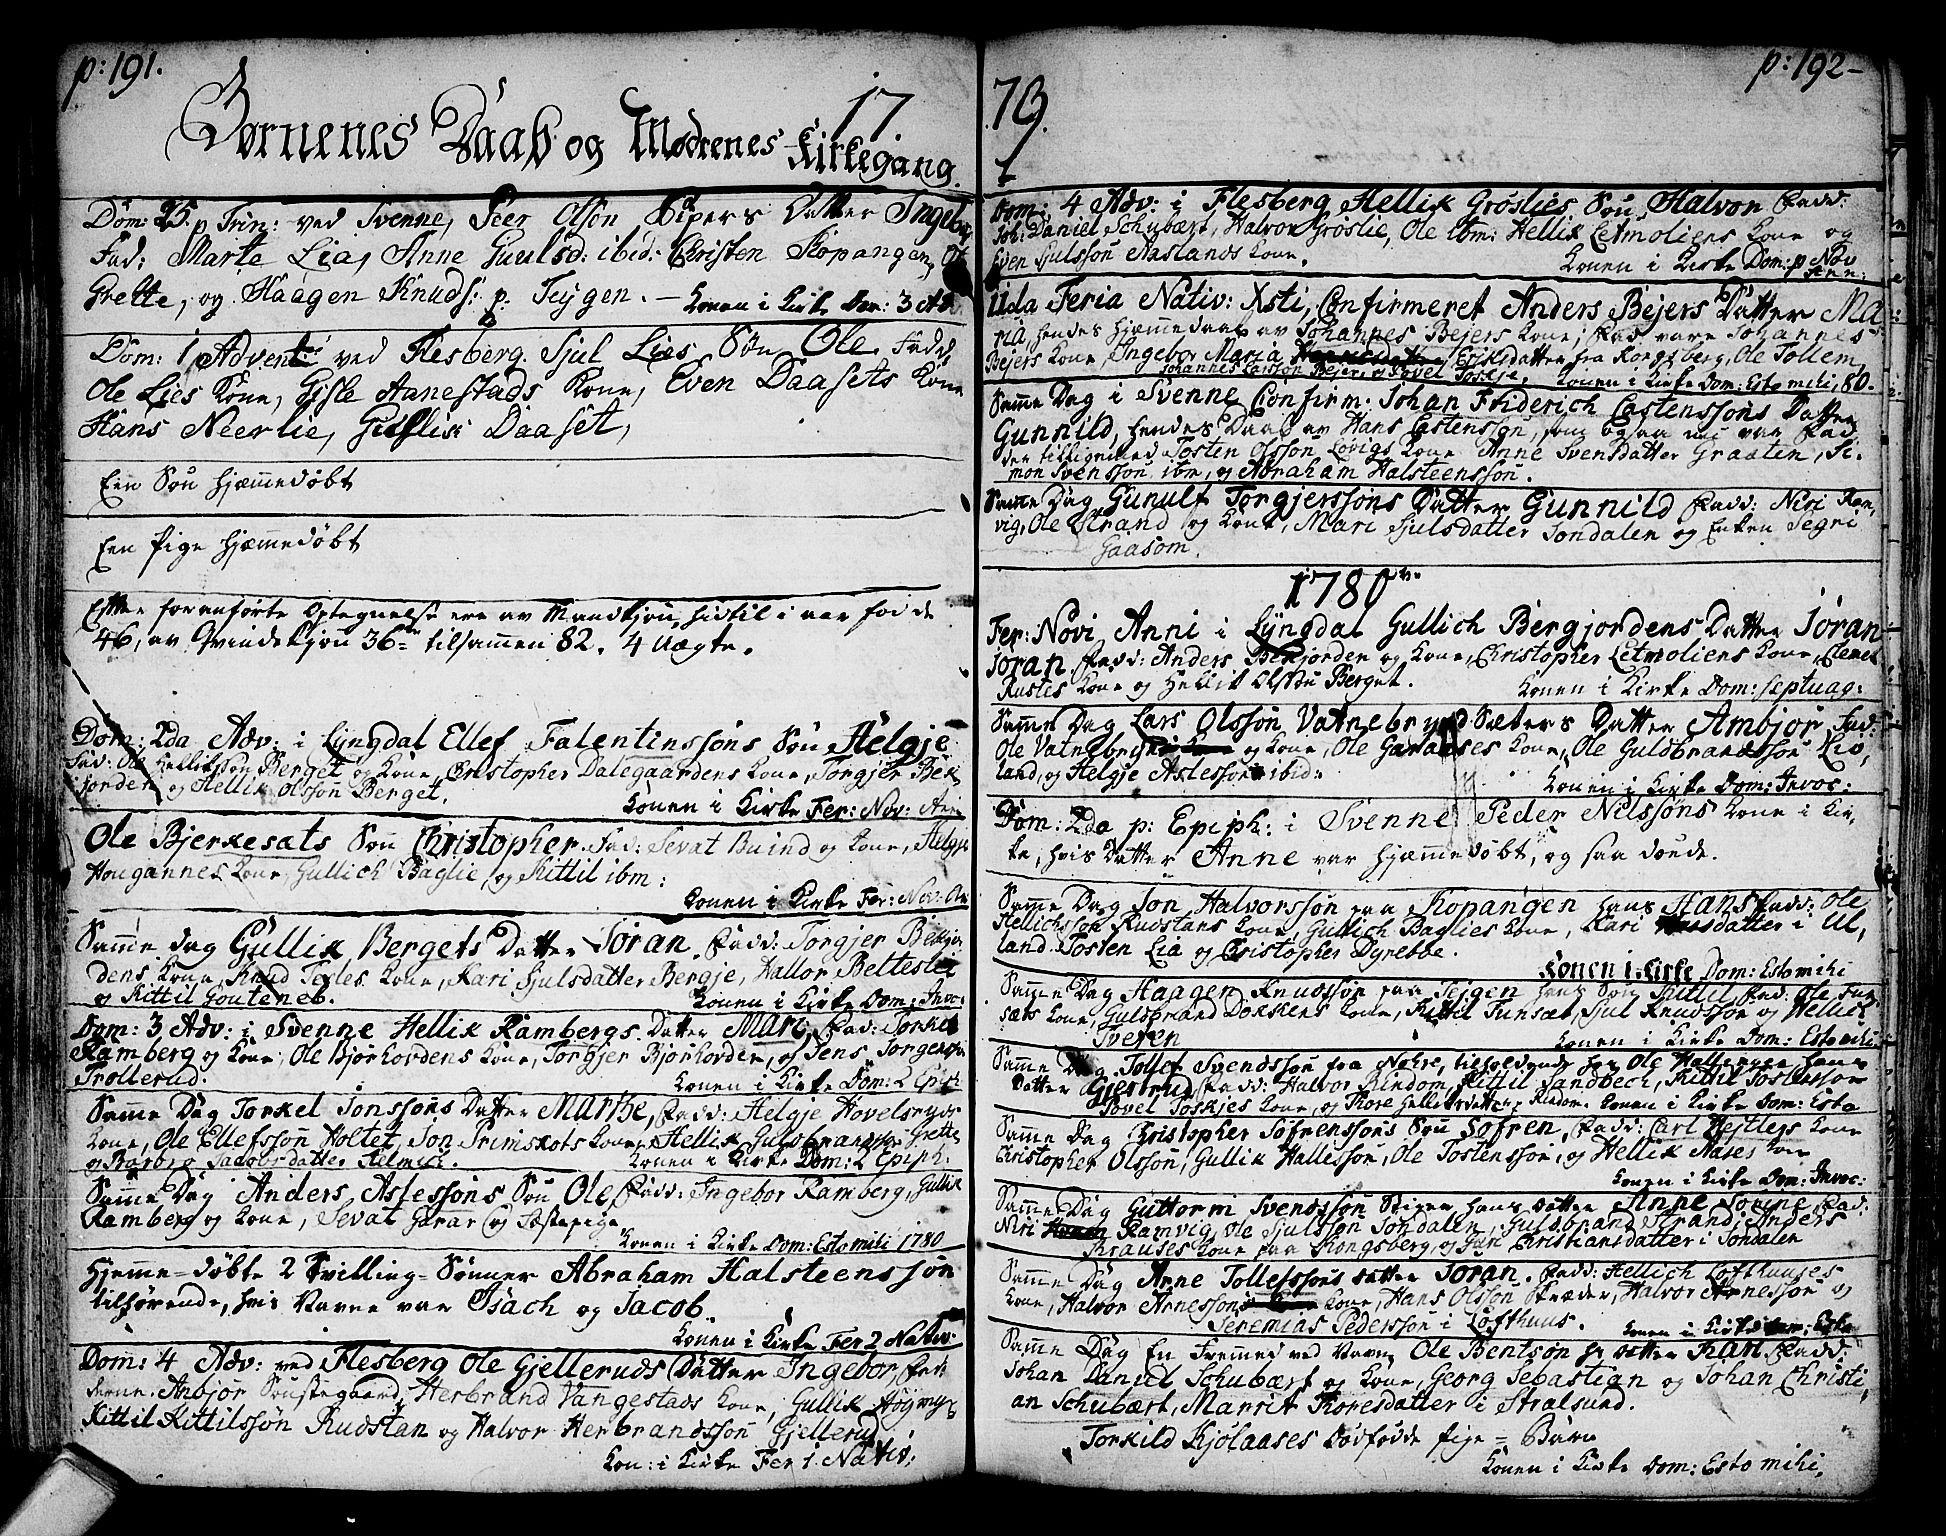 p: 191.
17
Børnenes Daab og Mødrenes Kirkegang.
Dom: 25. p Trin: ved Svenne, Peer Olsøn Datter Ingeb
Fad: Marte Lia, Anne Guulsd: ibid: Christen Kopangen, Ol
Grette, og Haagen Knuds: p: Teygen. - Konen i Kirke Dom: 3 Ad
Dom: 1 Advent: ved Flesberg. Sjul Lies Søn Ole. Fadd:
Ole Lies Kone, Gisle Aanestads Kone, Even Daasets Kone
Hans Neerlie, Daaset,
Een Søn hjemmedøbt
Een Pige hjemmedøbt
foranførte Optegnelse ere av Mandkjøn hidtil i aar fødde
46, av Qvindekjøn 36 tilsammen 82. 4 Uægte.
Dom: 2da Adv: i Lyngdal Ellef Falentinssøns Søn Helgje
Fad: Ole Hellikssøn Berget og Kone, Christopher Dalegaardens Kone, Torgjer Bek
jorden og Hellik Olssøn Berget. Konen i Kirke Fer: Nov: Ann
Ole Bjerkesæts Søn Christopher. Fad: Sevat Buind og Kone, Helgje
Hougannes Kone, Gullich Baglie, og Kittil ibm: Konen i Kirke Fer: Nov: Ann
Samme dag Gullik Bergets Datter Joran. Fadd: Torgjer Bekjor
dens Kone, Knud Kone, Kari Sjulsdatter Bergje, Hallvor Betteslie
og Kittil Konen i Kirke Dom: Invoc:
Dom: 3 Adv: i Svenne Hellik Rambergs Datter Mari, Fad: Torkel
Ramberg og Kone, Ole Bjørhovdens Kone, Torgjer Bjørhovden, og Jens Jorgenssøn
Trollerud. Konen i Kirke Dom: 2 Epiph
Samme Dag Torkel Jonssøns Datter Marthe, Fadd: Helgje Hovelsruds
Kone, Ole Ellefssøn Holtet, Jon Kone, Hellik Gulbranssøn Grette
og Barbro Jacobsdatter Konen i Kirke Dom: 2 Epiph:
Samme Dag Anders Aslessøns Søn Ole. Fadd: Ingebor Ramberg, Gullik
Ramberg og Kone, Sevat og
Konen i Kirke Dom: Esto mihi 1780
Hjemme-døbte 2 Tvilling-Sønner Abraham Halsteenssøn
tilhørende, hvis Navne var Isach og Jacob.
Konen i Kirke Fer 2 Nativ:
Dom: 4 Adv: ved Flesberg Ole Gjelleruds Datter Ingebor, Fad
derne: Anbjør Herbrand Vangestads Kone, Gullik Høymyr
Kittil Kittilssøn Rudstan og Halvor Herbrandssøn Gjellerud
Kon: i Kirke Fer 1. Nativ:
p: 192
79.
Dom: 4 Adv: i Flesberg Hellik Grøslies Søn Halvor Fadd:
Joh: Daniel Schubært, Halvor Grøslie, Ole ibm: Hellik Letmoliens Kone og
Even Sjulssøn Aaslands Kone. Konen i Kirke Dom: p Nov
Ann:
IIda Feria Nativ: Xsti, Confirmeret Anders Bejers Datter Ma
ria, hendes hjemmedaab av Johannes Bejers Kone; Fad vare Johannes
Bejers Kone, Ingebor Maria Eriksdatter fra Kongsberg, Ole Tollem,
Johannes Larssøn Bejer, og Povel Toskje. Konen i Kirke Dom: Esto mihi, 80.
Samme Dag i Svenne Confirm: Johan Friderich Castenssøns Datter
Gunnild, hendes Daab av Hans Castenssøn, som ogsaa nu var Fad
der tilligemed Tosten Olssøn Løvigs Kone Anne Svensdatter Graaten, Si
mon Svenssøn ibm, og Abraham Halsteenssøn.
Samme Dag Gunulf Torgjerssøns Datter Gunnild Fadd: Niri Ram
vig, Ole Strand og Kone, Mari Sjulsdatter Jondalen og Enken Segri
Gaasom.
1780
Fer: Novi Anni i Lyngdal Gullich Bergjordens Datter Joran
Joran. Fadd: Anders Bekjorden og Kone, Christopher Letmoliens Kone, Clemet
Rustes Kone og Hellik Olssøn Berget. Konen i Kirke Dom: septuag:
Samme Dag Lars Olssøn Vatnebrynd Sæters Datter Ambjør Fad:
Ole Vatnebryn og Kone, Ole Garaases Kone, Ole Guldbrandssøn Lio,
land, og Helgje Aslessøn ibid:
Konen i Kirke Dom: Invoc:
Dom: 2da p: Epiph: i Svenne Peder Nilssøns Kone i Kir,
ke, hvis Datter Anne var hjemmedøbt, og saa døde.
Samme Dag Jon Halvorssøn paa Kopangen hans Hans Fadd: Ole
Hellichssøn Rudstans Kone, Gullich Baglies Kone, Kari datter i Ul,
land. Tosten Lia og Christopher Dyrebbe.
Konen i Kirke Dom: Esto mihi
Samme Dag Haagen Knudssøn paa Tejgen hans Søn Kittil Fad: Ole Fun
sæts Kone, Gulbrand Dokkens Kone, Kittil Funsæt, Sjul Knudssøn og Hellich
Tveten Konen i Kirke Dom: Esto mihi
Samme Dag Tollef Svendssøn fra Nohre, tilholdende hos Ole Hallingen hans
Datter Gjertrud, Fadd: Halvor Rindom, Kittil Sandbech, Kittil Tostenssøn
Povel Toskjes Kone, og Thore Helliksdatter Rindom. Konen i Kirke Dom: Esto
Samme Dag Christopher Sofrenssøns Søn Sofren, Fadd: Carl Kone
Christopher Olssøn, Gullik Hallessøn, Ole Tostenssøn, og Hellik Aases Kone
Konen i Kirke Dom: Invoc:
Samme Dag Guttorm Svendssøn Stigen hans Datter Anne Fad:
Niri Ramvig, Ole Sjulssøn Jondalen, Gulbrand Strand, Anders
Krauses Kone paa Kongsberg, og Christiansdatter i Jondalen
Samme Dag Arne Tollefssøns Datter Joran. Fadd: Hellich Lofthuuses
Kone, Halvor Arnessøns Kone, Hans Olssøn Skræder, Halvor Arnessøn og
Jeremias Pederssøn i Lofthuus. Konen i Kirke Dom: Esto
Samme Dag En Fremmed ved Navn Ole Bentsøn hs Datter Kari. Fadd:
Johan Daniel Schubært og Kone, Georg Sebastian og Johan Christi,
an Schubært, Marrit Thoresdatter i Stralsund.
Torkild Kjølaases dødfødde Pige = Barn
Konen i Kirke Dom: Esto mihi,